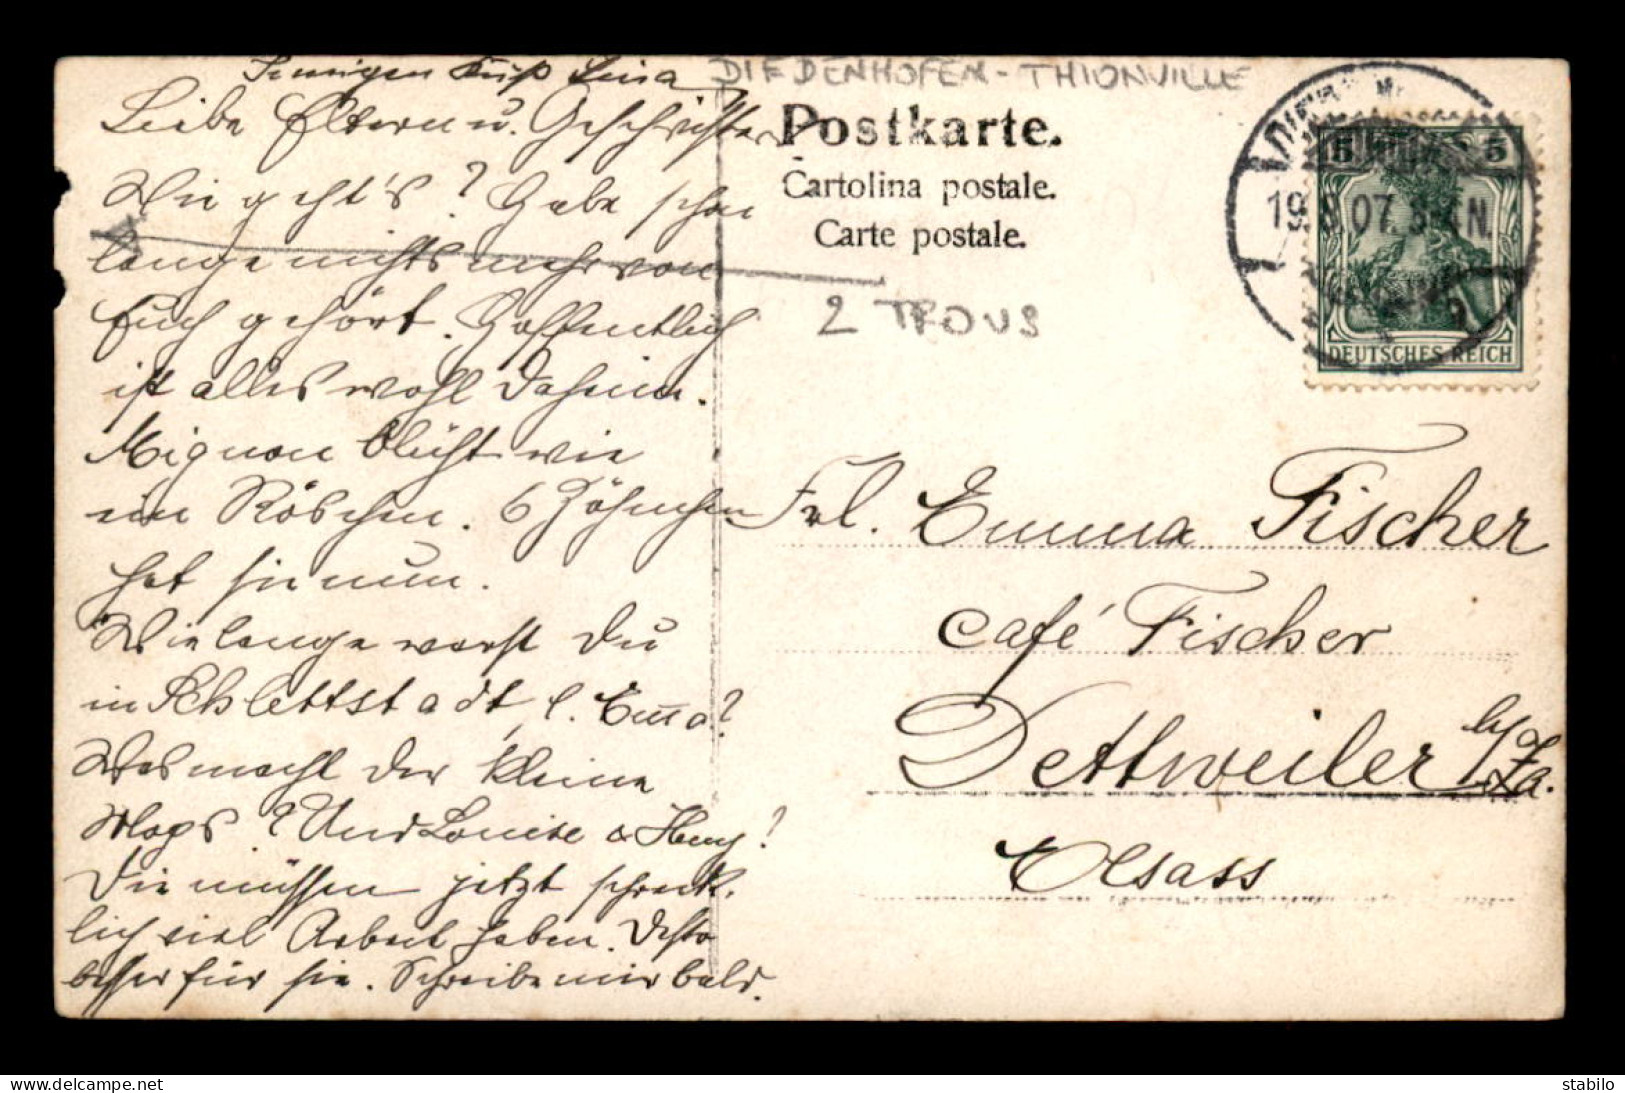 Innigen Kuß Lina
Liebe Eltern u. Geschwister
Wie geht's? Habe schon
lange nichts mehr von
Euch gehört. Hoffentlich
ist alles wohl daheim.
Mignon blüht wie
ein Röschen. 6 Zähnchen
hat sie nun.
Wie lange warst Du
in Schlettstadt, l. Emma?
Was macht der kleine
Mops? Und Louise &
Die müssen jetzt schreck-
lich viel Arbeit haben. Desto
besser für sie. Schreibe mir bald.
DIEDENHOFEN - THIONVILLE
Postkarte.
Cartolina postale.
Carte postale.
2 TROUS
19. 07. N.
5 5
DEUTSCHES REICH
Frl. Emma Fischer
Café Fischer
Dettweiler b/ Za.
Elsass
delcampe.net
stabilo